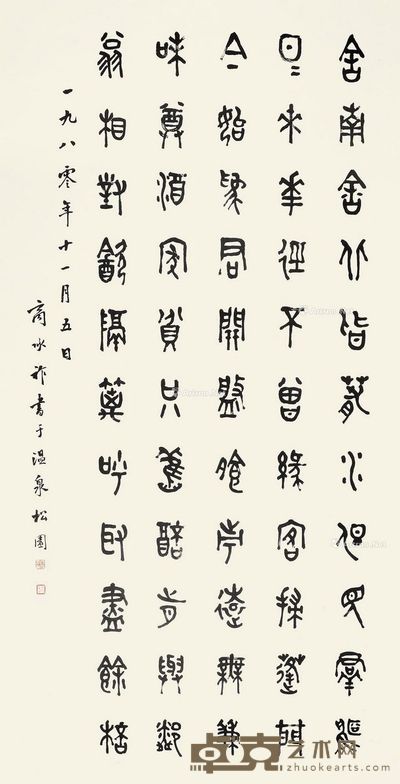 舍南舍北皆春水但見羣鷗
日〻來華徑不曾緣客掃蓬門
今始為君開盤飧市遠無兼
味尊酒家貧只舊醅肯與鄰
翁相對飲隔籬呼取盡餘桮
一九八零年十一月五日
商承祚書于溫泉松園
卓克艺术网
http://www.zhuokearts.com